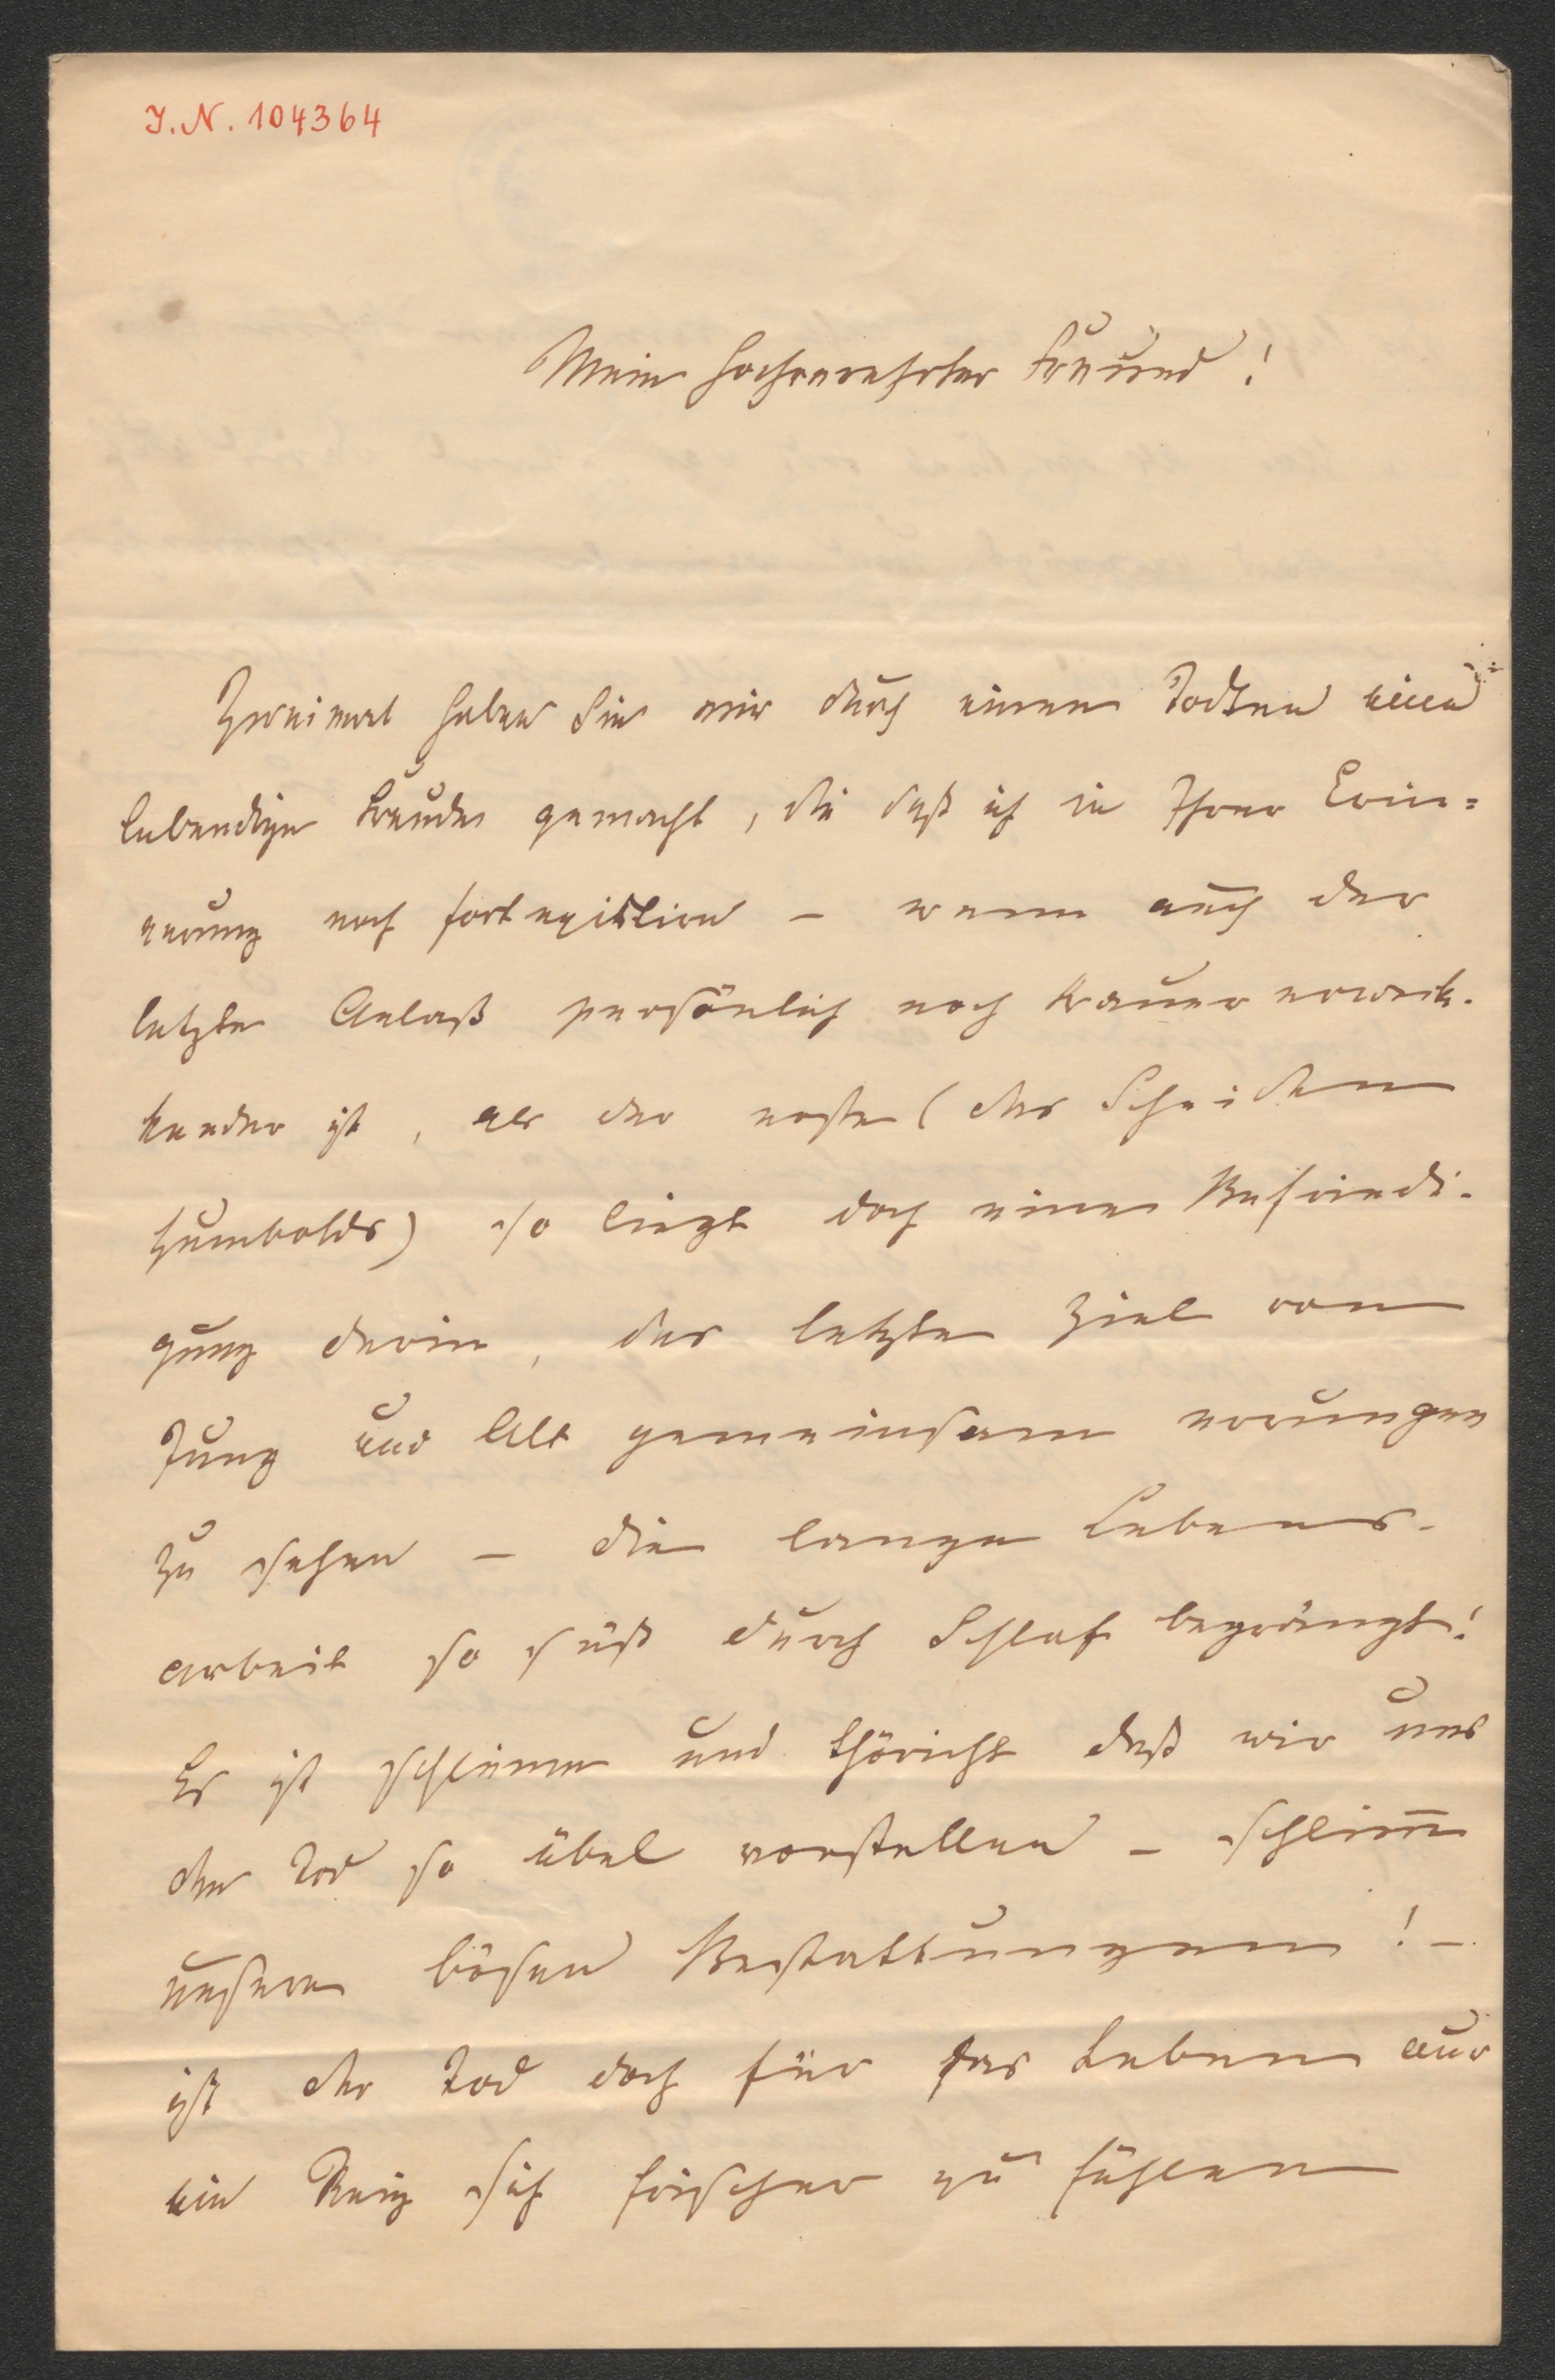 I. N. 104364
Mein hochverehrter Freund!
Zweimal haben Sie mir durch einen Todten eine
lebendige Freude gemacht, die daß ich in Ihrer Erin=
nerung noch fortexistire – wenn auch der
letzte Anlaß persönlich noch trauererwek-
kender ist, als der erste (das Scheiden
Humbolds) so liegt doch eine Befriedi-
gung darin, das letzte Ziel von
Jung und Alt gemeinsam errungen
zu sehen – die lange Lebens-
arbeit so süß durch Schlaf begränzt!
Es ist schlimm und thöricht daß wir uns
den Tod so übel vorstellen – schlim̄
unsere bösen Bestattungen! –
ist der Tod doch für das Leben nur
ein Reiz sich frischer zu fühlen